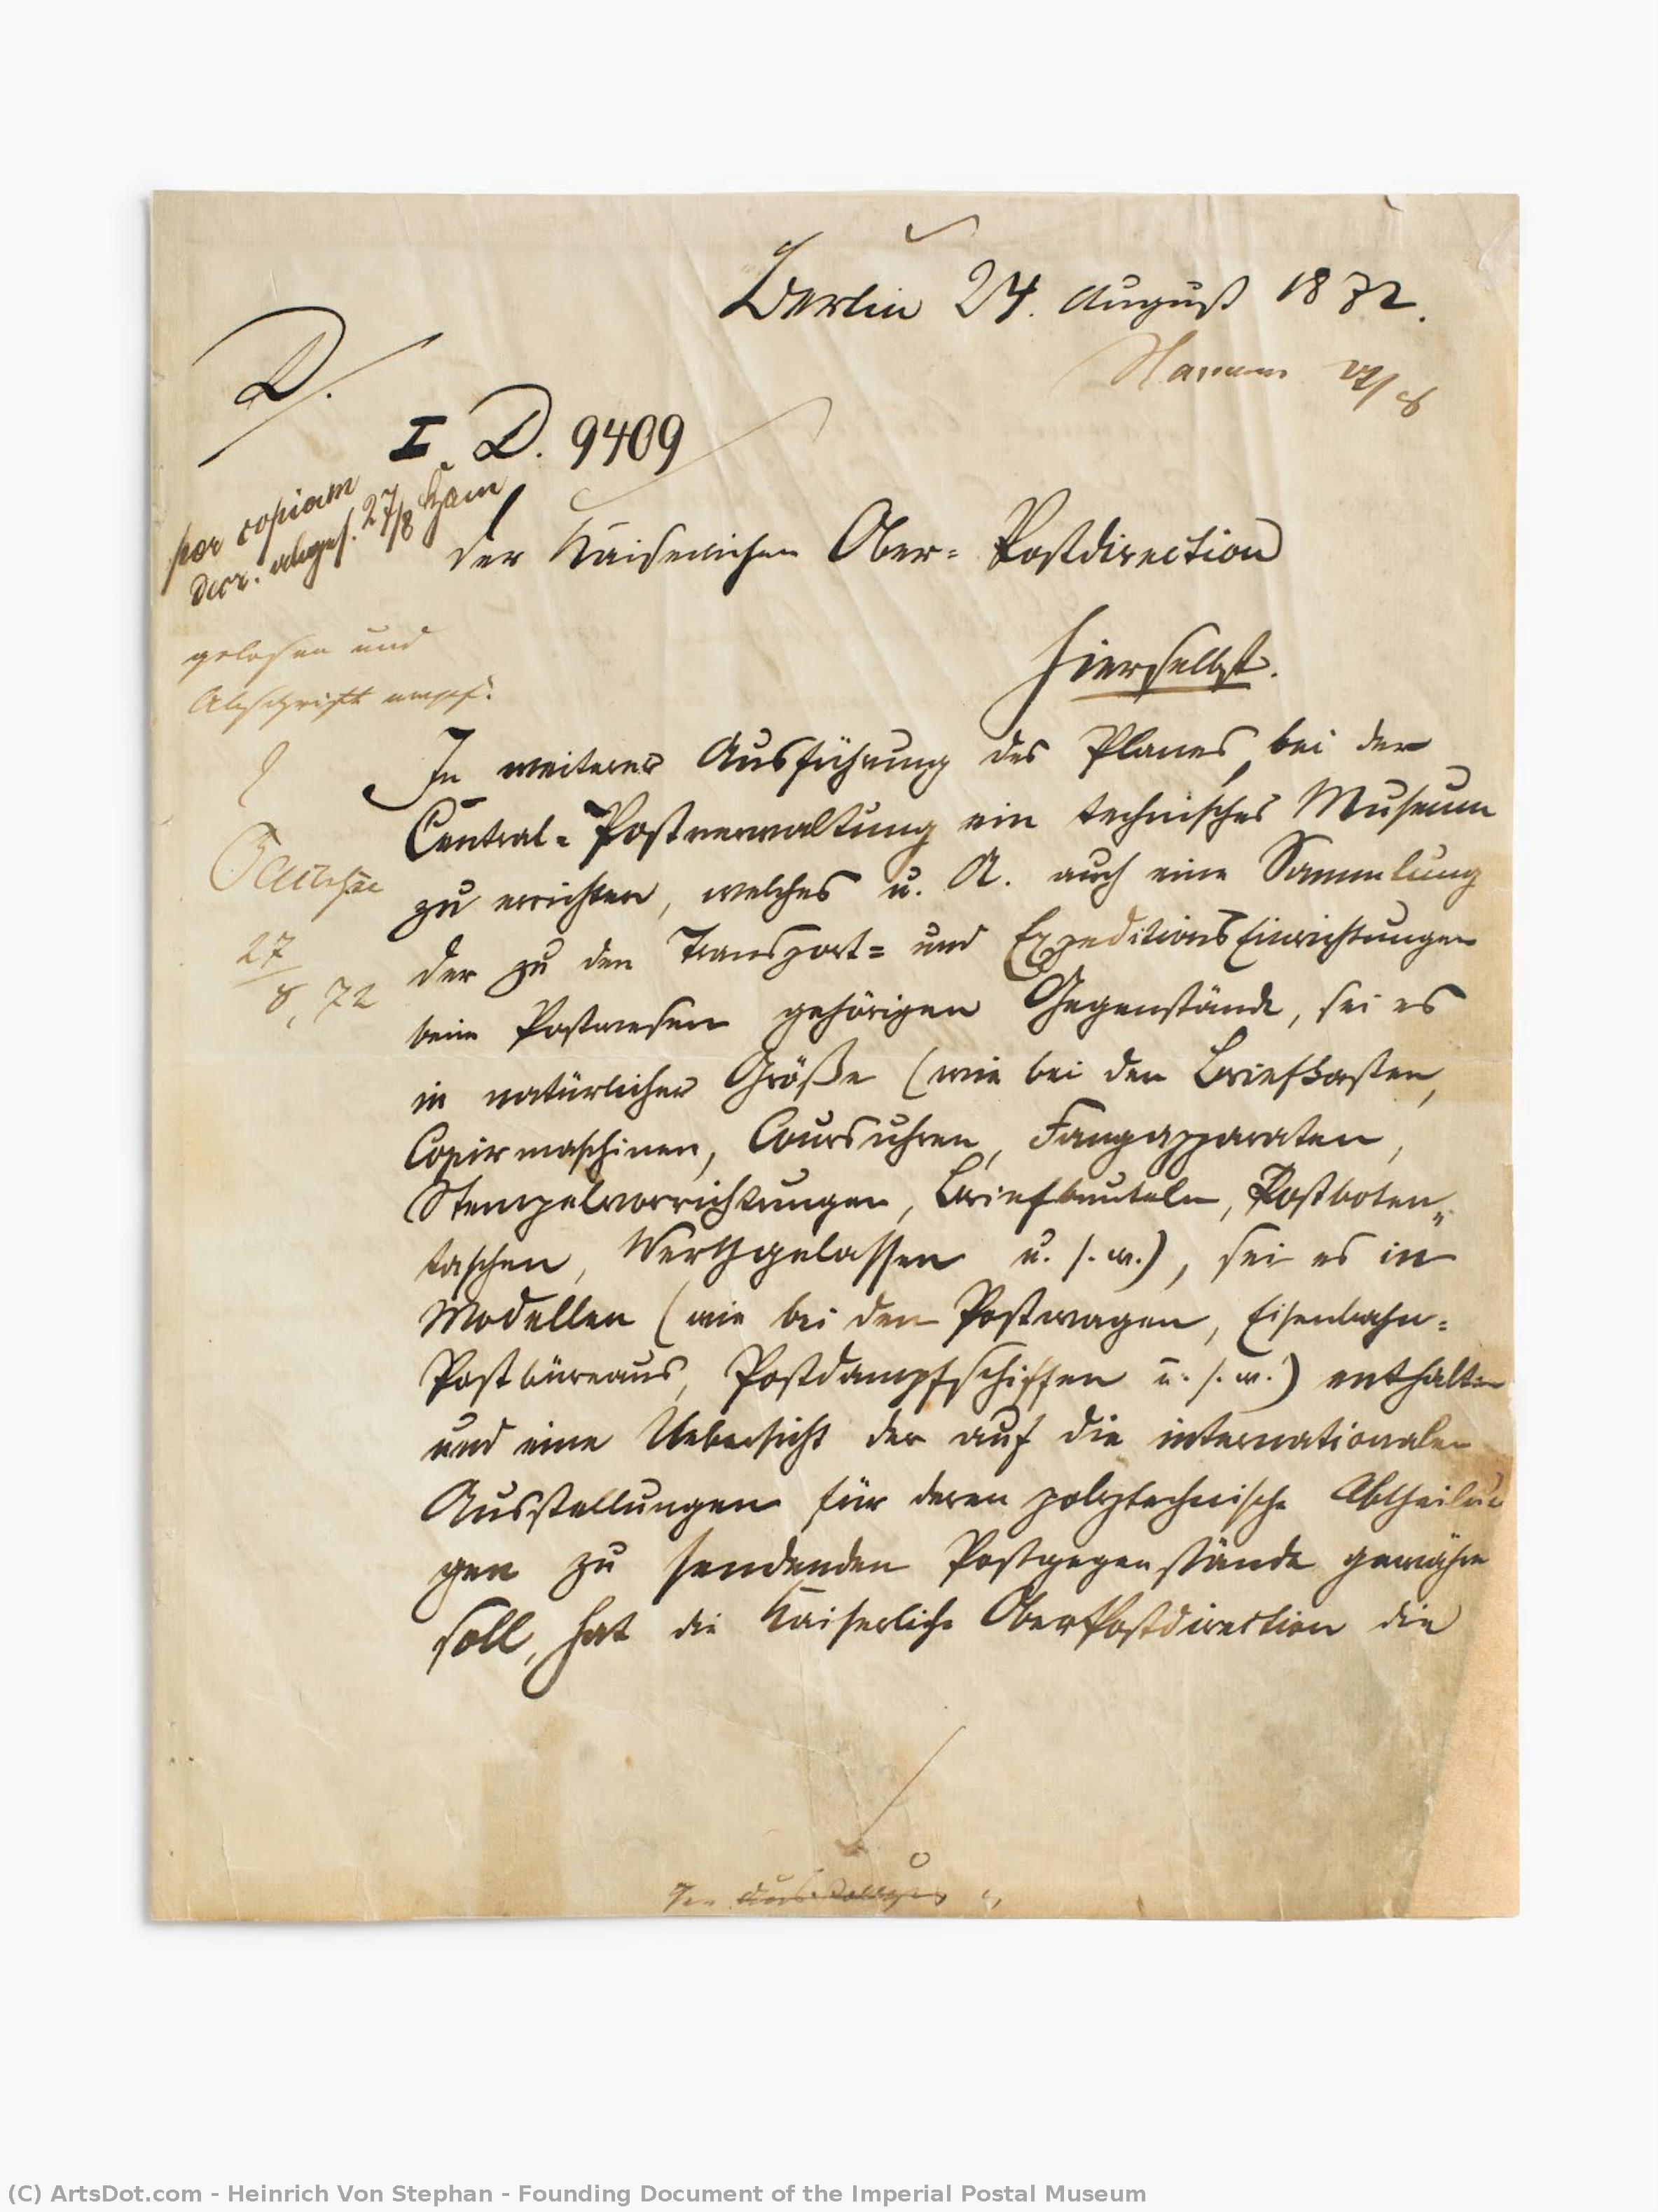 Berlin 24. August 1872.
D.
I. D. 9409
per copiam
decr. abges. 27/8
der Kaiserlichen Ober-Postdirection
gelesen und
Abschrift
hierselbst.
In weiterer Ausführung des Planes, bei der
Central-Postverwaltung ein technisches Museum
zu errichten, welches u. A. auch eine Sammlung
27/8, 72
der zu den Transport- und Expeditionseinrichtungen
beim Postwesen gehörigen Gegenstände, sei es
in natürlicher Größe (wie bei den Briefkasten,
Copirmaschinen, Coursuhren, Fangapparaten,
Stempelvorrichtungen, Briefbeuteln, Postboten-
taschen, Werthgelassen u. s. w.), sei es in
Modellen (wie bei den Postwagen, Eisenbahn-
Postbüreaus, Postdampfschiffen u. s. w.) enthalten
und eine Uebersicht der auf die internationalen
Ausstellungen für deren polytechnische Abtheilun
gen zu sendenden Postgegenstände gewähren
soll, hat die Kaiserliche OberPostdirection die
(C) ArtsDot.com - Heinrich Von Stephan - Founding Document of the Imperial Postal Museum